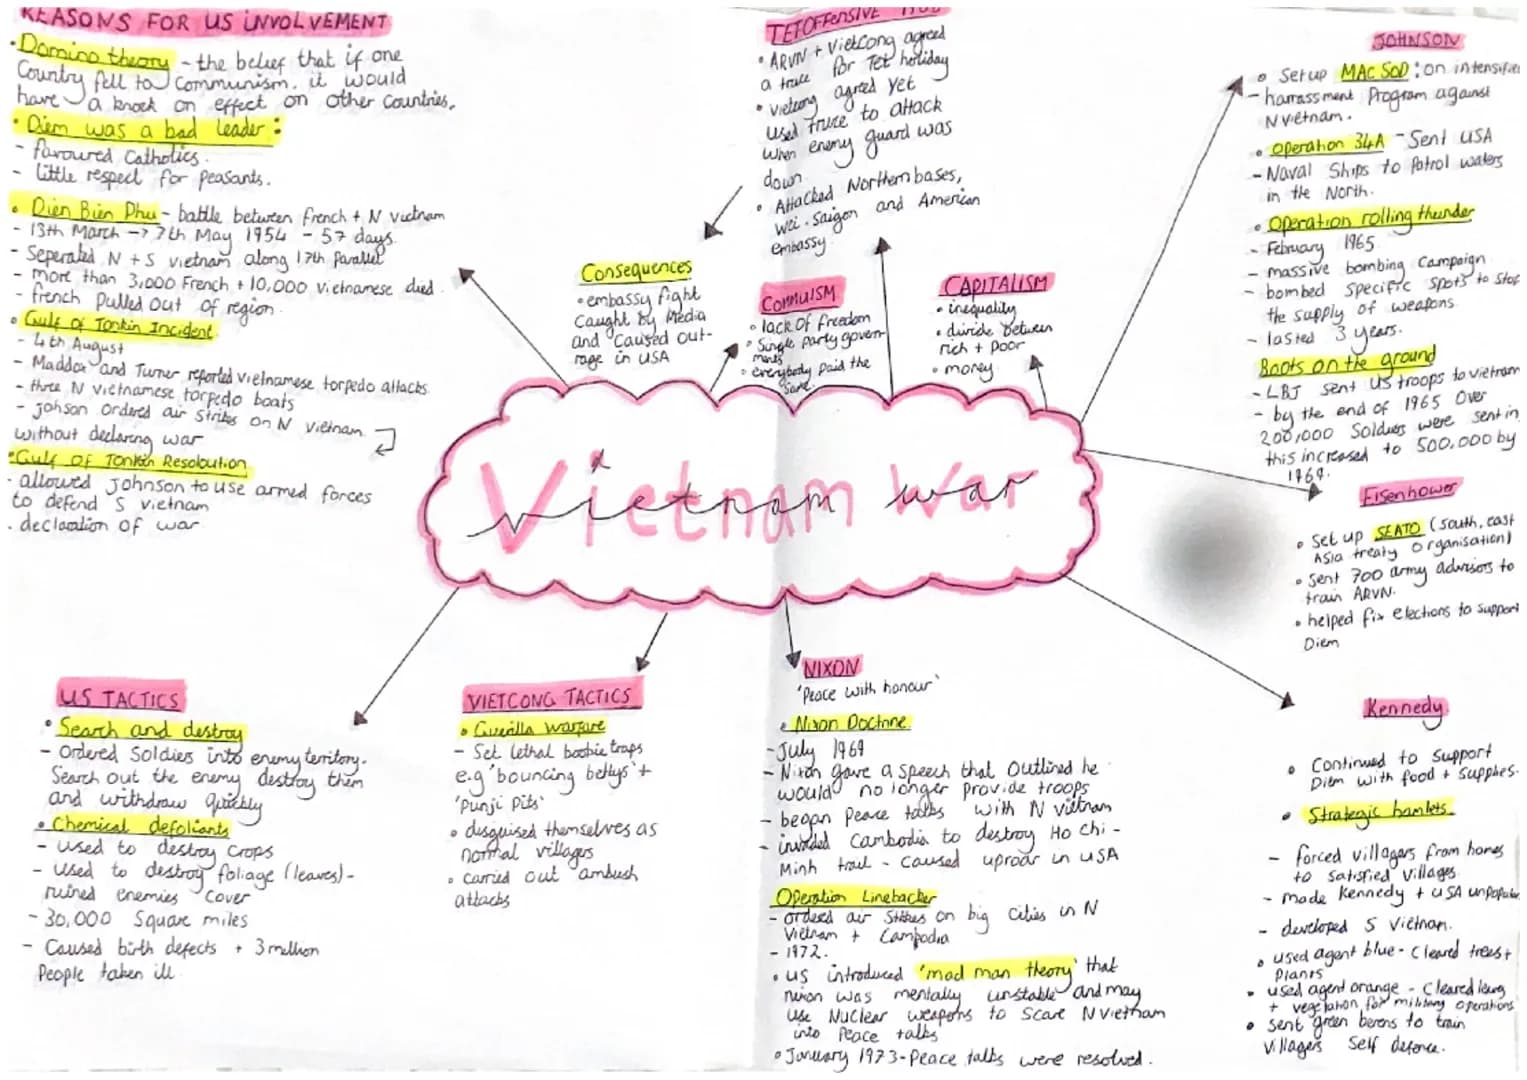 REASONS FOR US INVOLVEMENT
• Domino theory - the belief that if one
Country fell to Communism, it would
have a knock on effect on other countries.
• Diem was a bad leader:
- favoured Catholics.
- little respect for peasants.
• Dien Bien Phu - battle between french + N vietnam
- 13th March -> 7th May 1954 - 57 days
- Seperated N + S vietnam along 17th parallel
- more than 3,000 French + 10,000 vietnamese died.
- french pulled out of region.
• Gulf of Tonkin Incident.
- 4th August
- Maddox and Turner reported vietnamese torpedo attacks
- three N vietnamese torpedo boats
- johson ordered air strikes on N vietnam
without declaring war
• Gulf of Tonkin Resoloution
- allowed Johnson to use armed forces
to defend S vietnam
- declaration of war
TET OFFENSIVE
• ARVN + VietCong agreed
a truce for Tet holiday
• vietcong agreed yet
used truce to attack
when enemy guard was
down.
• Attacked Northern bases,
Saigon and American
embassy
Consequences
• embassy fight
Caught by Media
and caused out-
rage in USA
COMMUISM
• lack of freedom
• Single party govern-
ments
• everybody paid the
same.
CAPITALISM
• inequality
• divide between
rich + poor
• money
JOHNSON
• Set up MAC SOD: an intensified
- harrassment Program against
N vietnam.
• Operation 34A - Sent USA
- Naval Ships to Patrol waters
in the North.
• Operation rolling thunder
- February 1965
- massive bombing Campaign
- bombed specific spots to stop
the supply of weapons
- lasted 3 years.
Boots on the ground
- LBJ sent US troops to vietnam
- by the end of 1965 over
200,000 Soldiers were sent in,
this increased to 500,000 by
1969.
Vietnam War
vietnam war
Eisenhower
• Set up SEATO (South, east
Asia treaty Organisation)
• Sent 700 army advisors to
train ARVN.
• helped fix elections to support
Diem
US TACTICS
• Search and destroy
- Ordered Soldiers into enemy territory.
Search out the enemy destroy them
and withdraw quickly
• Chemical defoliants
- used to destroy crops
- used to destroy foliage (leaves) -
ruined enemies cover
- 30,000 Square miles
- Caused birth defects + 3 million
People taken ill.
VIETCONG TACTICS
• Guerilla warfare
- Set lethal boobie traps
e.g 'bouncing bettys' +
'Punji pits'
• disguised themselves as
normal villagers
• carried out ambush
attacks
NIXON
'Peace with honour'
• Nixon Doctrine
- July 1969
- Nixon gave a speech that outlined he
would no longer provide troops
- began Peace talks with N vietnam
- invaded Cambodia to destroy Ho Chi -
Minh trail - caused uproar in USA
Operation Linebacker
- ordered air strikes on big cities in N
Vietnam + Cambodia
- 1972.
• US introduced 'mad man theory' that
nixon was mentally unstable and may
use Nuclear weapons to scare N Vietnam
into Peace talks
• January 1973 - Peace talks were resolved.
Kennedy
• Continued to Support
Diem with food + supplies.
• Strategic hamlets.
- forced villagers from homes
to satisfied villages
- made Kennedy + USA unpopular
- developed S vietnam.
• used agent blue - Cleared trees +
plants
• used agent orange - cleared leaves
+ vegetation for military operations
• Sent green berens to train
villagers self defence.